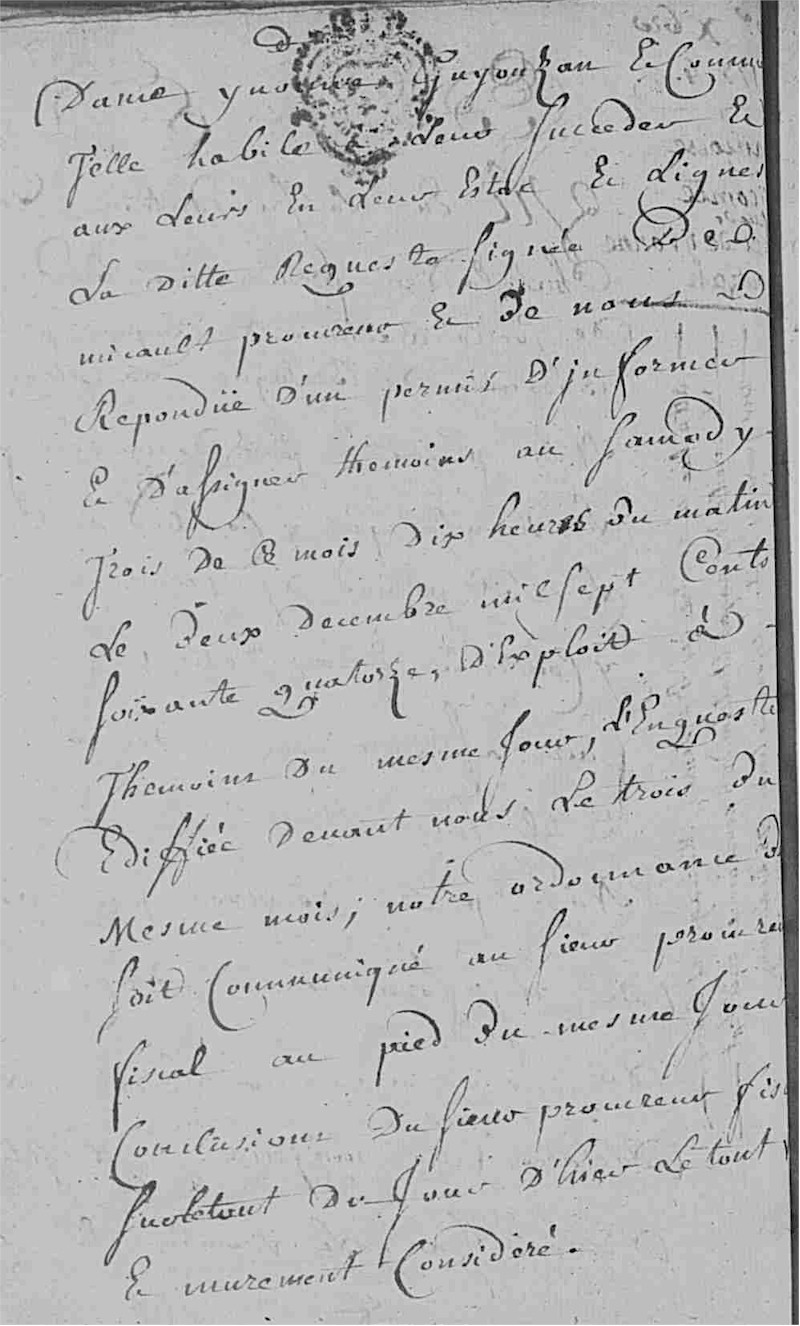 Dame yvonne Guyonzan Et Comm
Telle habile a Leur succeder Et
aux Leurs En Leur Estoc Et Lignes
La ditte Requeste signée
micault procureur Et de nous
Repondüe D'un permis D'jnformer
Et D'assigner themoins au samedy
Trois De Ce mois Dix heures du matin
Le Deux Decembre mil sept Cents
soixante quatorze, D'Exploit à
Themoins Du mesme Jour, L'Enqueste
Ediffiée Devant nous Le trois Du
Mesme mois; notre ordonnance De
soit Communiqué au sieur procureu
fiscal au pied Du mesme Jour
Conclusions Du sieur procureur fis
sur le tout Du Jour D'hier Le tout
Et murement Considéré.